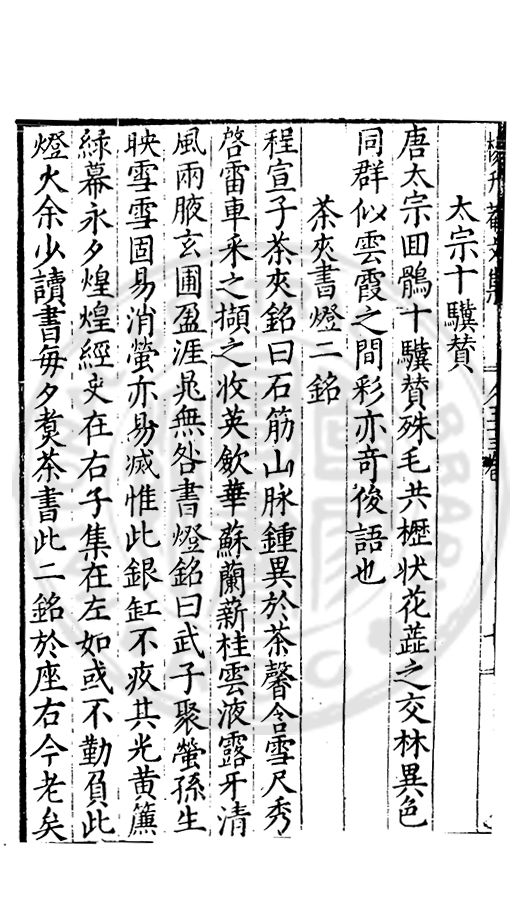 太宗十驥贊
唐太宗囬鶻十驥贊殊毛共櫪狀花蘂之交林異色
同群似雲霞之間彩亦竒俊語也
茶夾書燈二銘
程宣子茶夾銘曰石筋山脉鍾異於茶馨含雪尺秀
啓雷車采之擷之收英斂華蘇蘭薪桂雲液露牙清
風兩腋玄圃盈涯晁無咎書燈銘曰武子聚螢孫生
映雪雪固易消螢亦易滅惟此銀缸不疲其光黄簾
緑幕永夕煌煌經史在右子集在左如或不勤負此
燈火余少讀書每夕煑茶書此二銘於座右今老矣